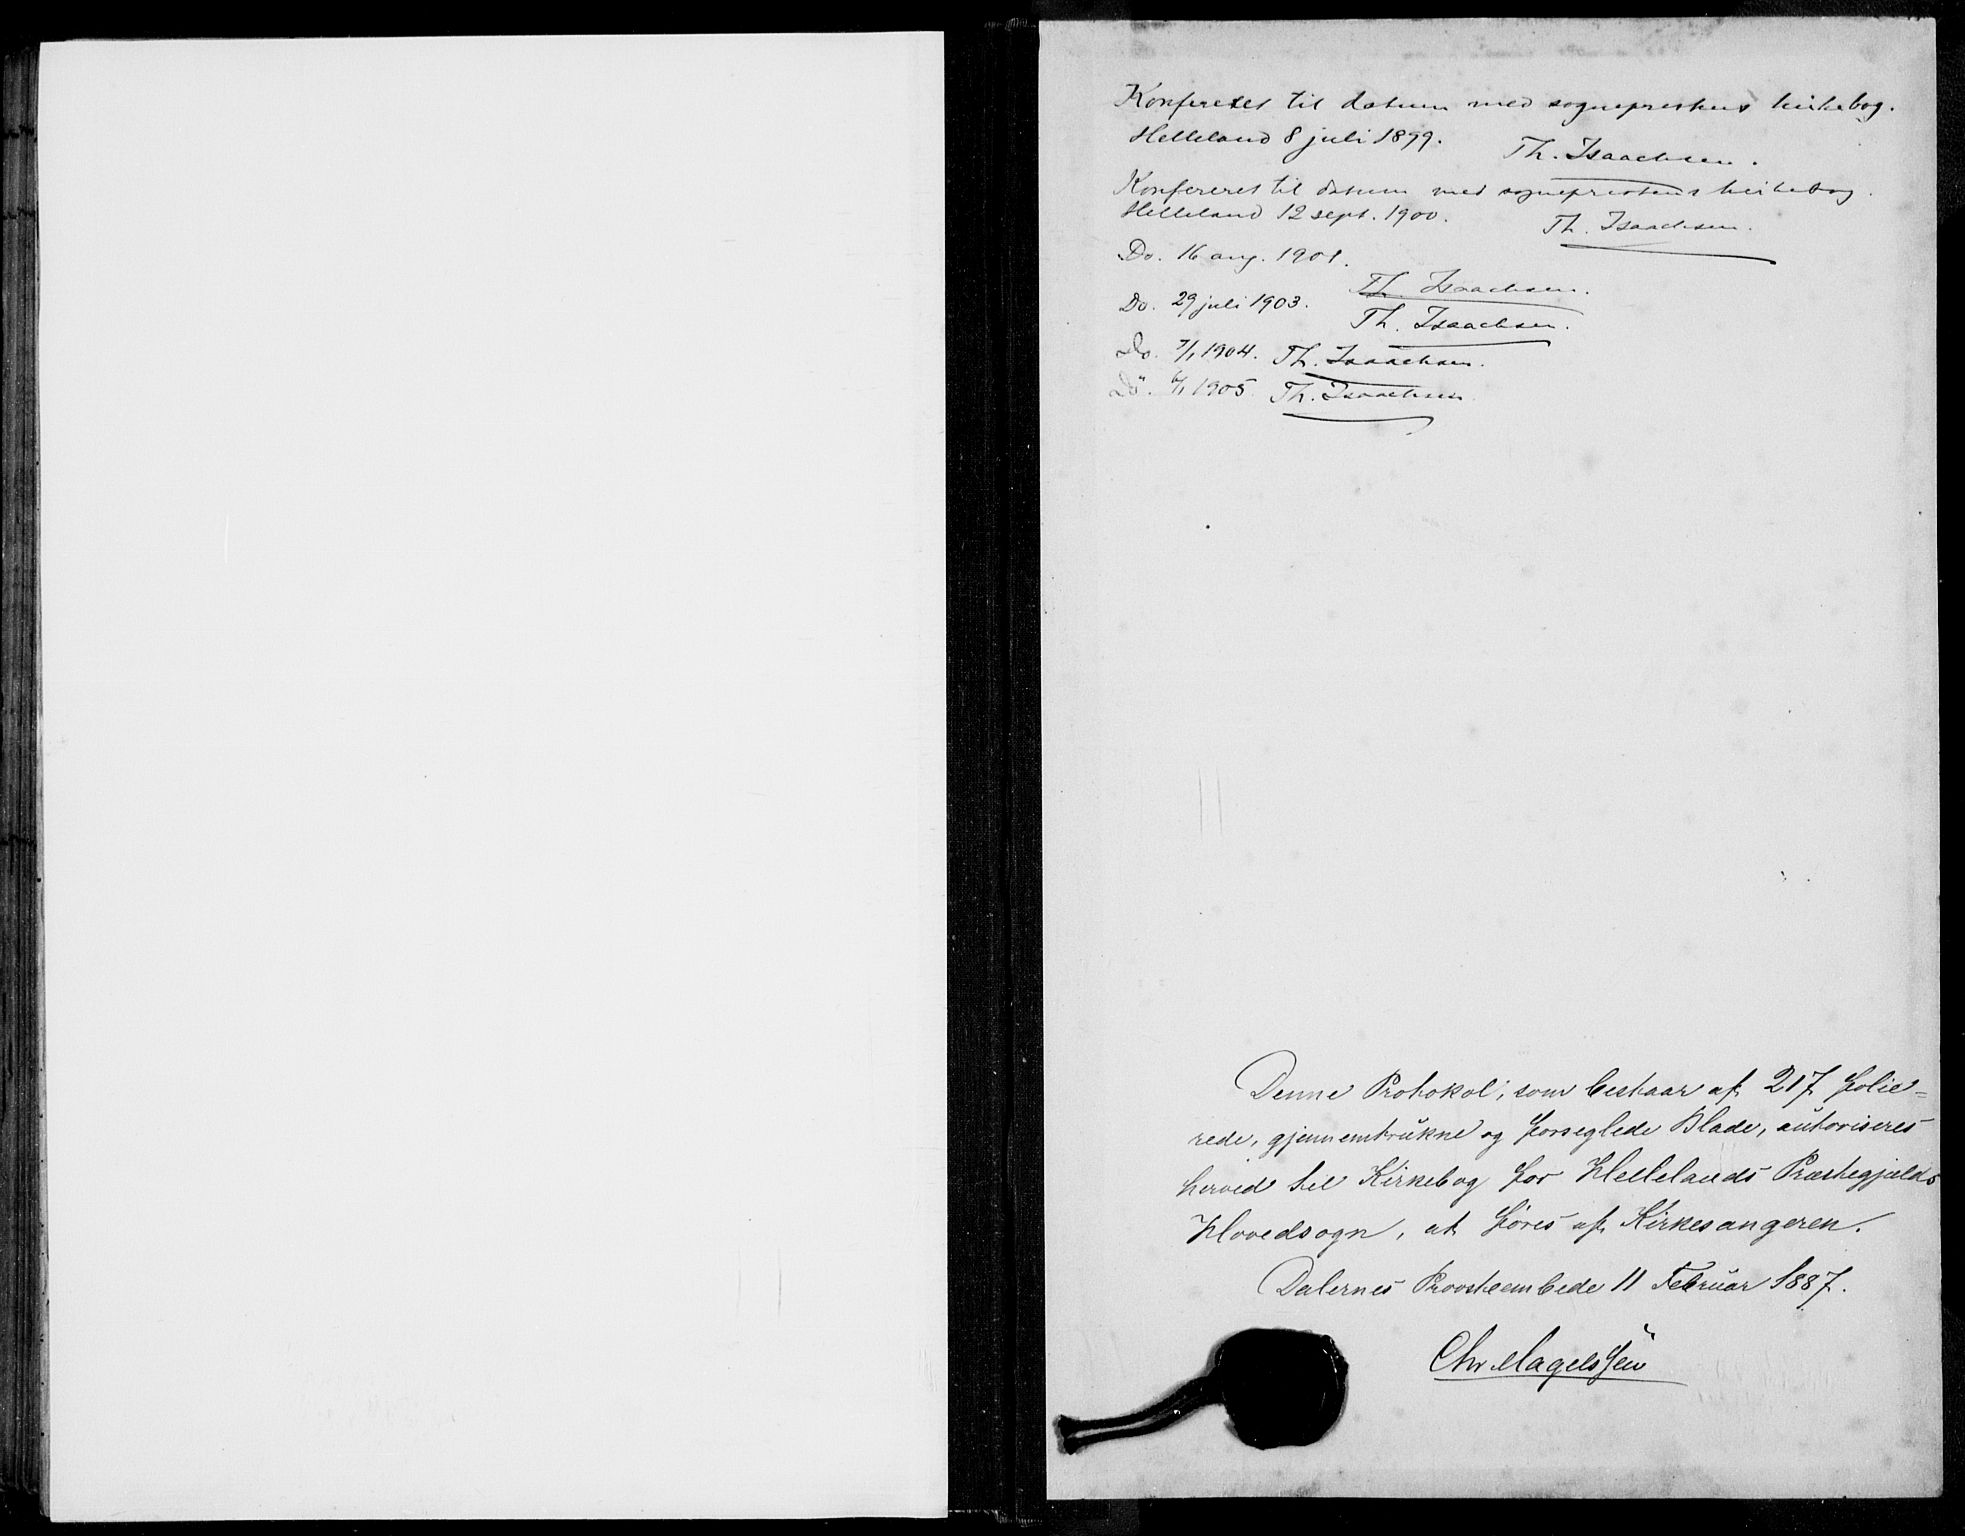 Konfereret til datum med sogneprestens kirkebog.
Helleland 8 juli 1899.
Th. Isaachsen.
Konfereret til datum med sogneprestens kirkebog.
Helleland 12 sept. 1900.
Th. Isaachsen.
Do. 16 aug. 1901.
Th. Isaachsen.
Do. 29 juli 1903.
Th. Isaachsen.
Do. 7/1 1904. Th. Isaachsen.
Do. 6/1 1905. Th. Isaachsen.
Denne Protokol, som bestaar af 217 folie=
rede, gjennemtrukne og forseglede Blade, autoriseres
herved til Kirkebog for Hellelands Præstegjælds
Hovedsogn, at føres af Kirkesangeren.
Dalernes Provsteembede 11 Februar 1887.
Chr Magelssen